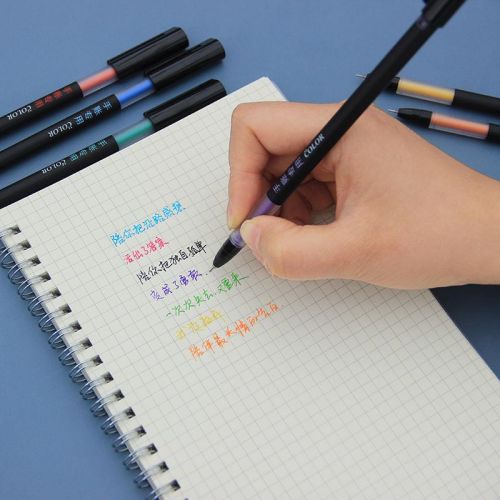 手帐专用 COLOR
手帐专用 COLOR
手帐专用 COLOR
手帐专用 COLOR
陪你把沿路感想
活出了答案
陪你把独自孤单
变成了勇敢
一次次失去 又重来
陪伴最长情的告白